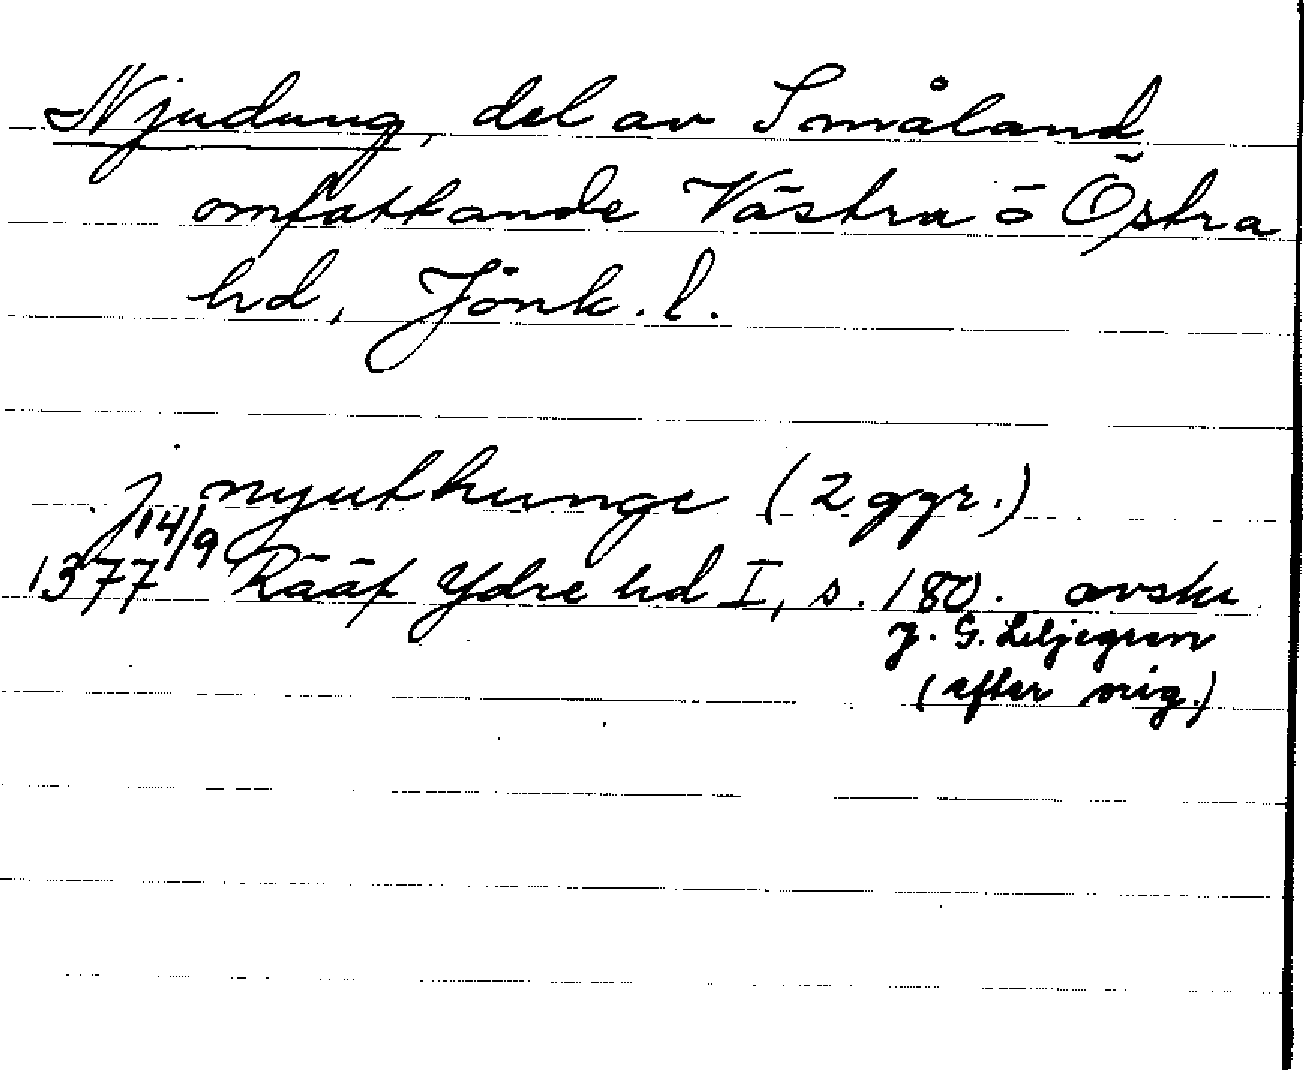 Njudung, del av Småland
omfattande Västra o Östra
hd, Jönk. l.
j nyuthunge (2 ggr.)
1377 14/9 Rääf Ydre hd I, s. 180. avskr
J. G. Liljegren
(efter orig.)